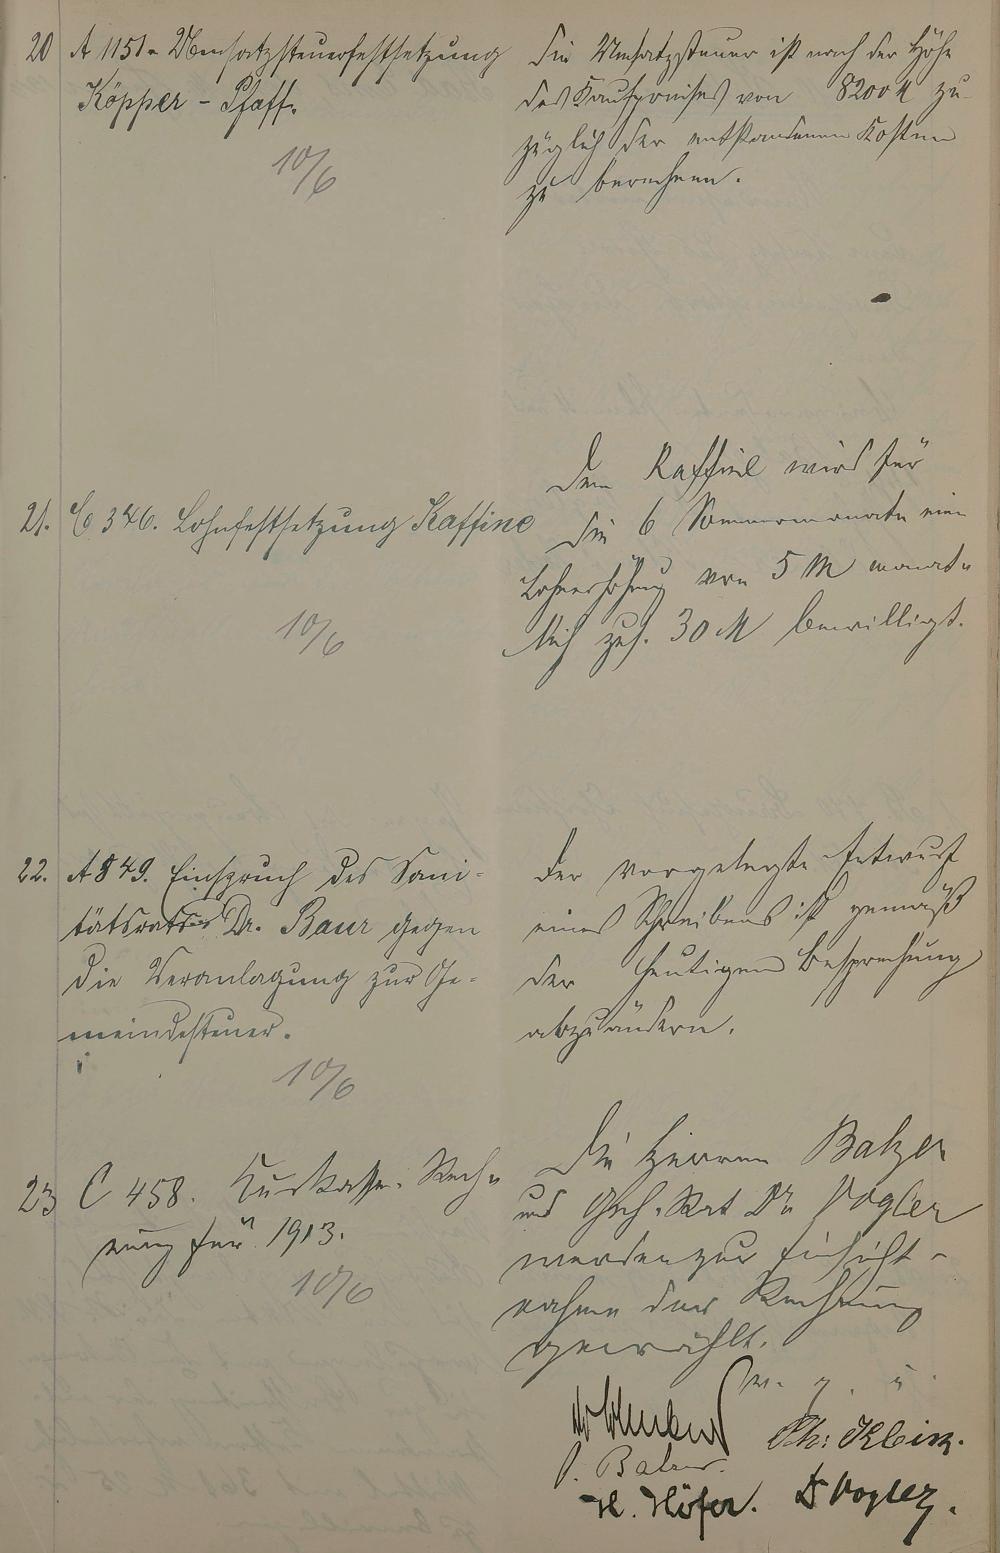 20 A 1151. Umsatzsteuerfestsetzung
Köpper - Pfaff.
10/6
Die Umsatzsteuer ist nach der Höhe
des Kaufpreises von 8200 M zu-
züglich der entstandenen Kosten
zu berechnen.
21. C 346. Lohnfestsetzung Kaffine
10/6
Dem Kaffine wird für
die 6 Sommermonate eine
Lohnerhöhung von 5 M monat-
lich zus. 30 M bewilligt.
22. A 849. Einspruch des Sani-
tätsrats Dr. Baur gegen
die Veranlagung zur Ge-
meindesteuer.
10/6
Der vorgelegte Entwurf
eines Schreibens ist gemäß
der heutigen Besprechung
abzuändern.
23 C 458. Kurkasse-Rech-
nung für 1913.
10/6
Die Herren Balzer
und Geh. Rat Dr Vogler
werden zur Einsicht-
nahme der Rechnung
gewählt.
v. g. u.
Ph: Klein.
P. Balzer.
H. Höfer. Dr Vogler.